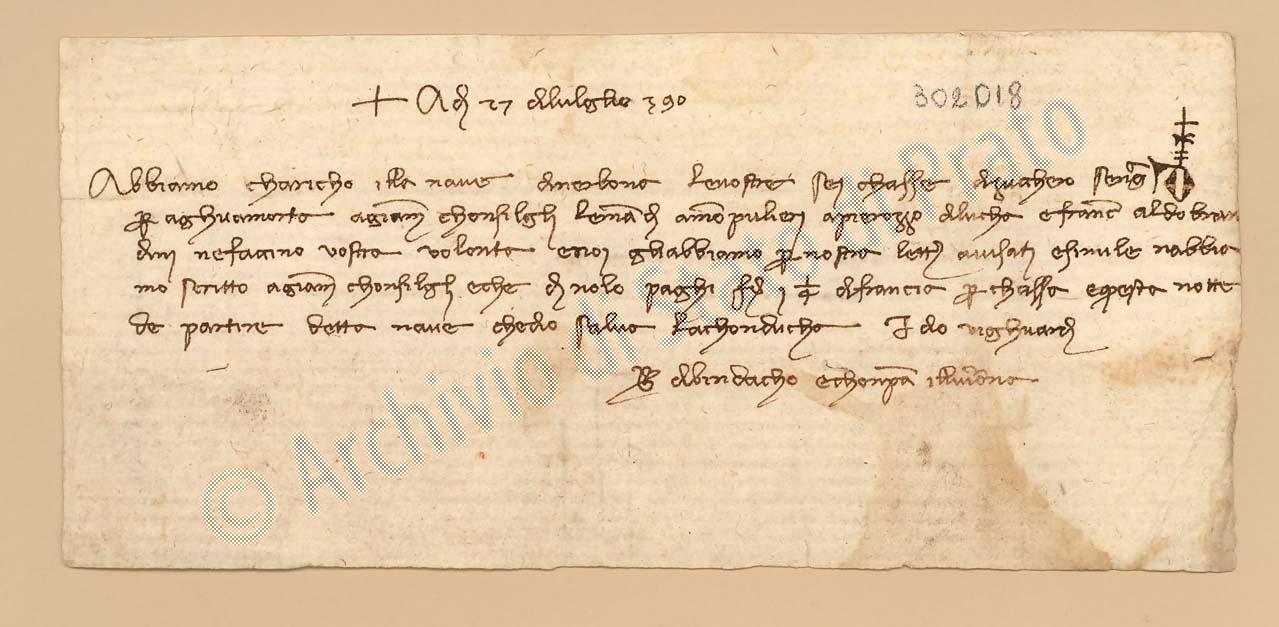 + A dì 27 di lulglio 390
302018
Abbiamo charicho in la nave di nerbona le vostre sei chasse di zuchero sengnate
per aghuamorta a gianni chonsilgli le mandi a monpulieri a pierozzo di lucha e franc aldobran
dini ne faccino vostra volonta e noi gli abbiamo per nostra lettera avisati e simile n abbia
mo scritto a gianni chonsilgli e che di nolo paghi di francia per chassa e questa notte
de partire detta nave che dio salva la chonducha Idio vi ghuardi
di bindacho e chonpa
© Archivio di Stato di Prato